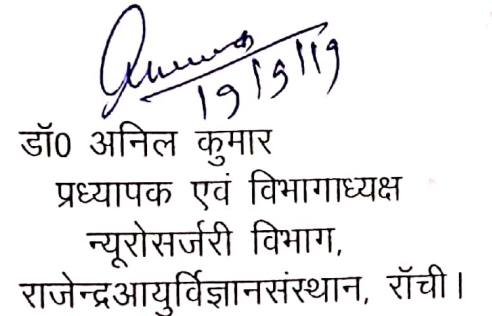 19/9/19
डॉ0 अनिल कुमार
प्रध्यापक एवं विभागाध्यक्ष
न्यूरोसर्जरी विभाग,
राजेन्द्रआयुर्विज्ञानसंस्थान, रॉची।